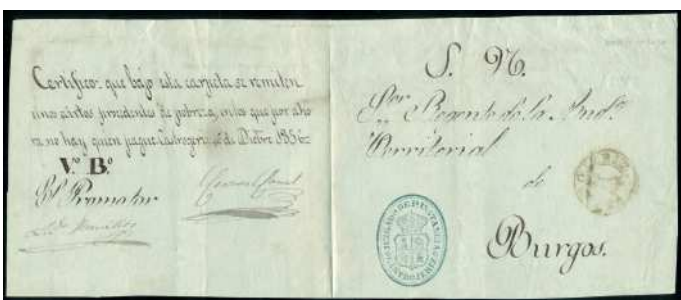 Certifico: que bajo esta carpeta se remiten
unos autos procedentes de pobreza, en los que por aho
ra no hay quien pague. Castrogeriz de Dicbre 1856
V.º B.º
El Promotor
S. N.
Sor. Regente de la Audª.
Territorial
de
Burgos.
JUZGADO DE 1ª INSTANCIA